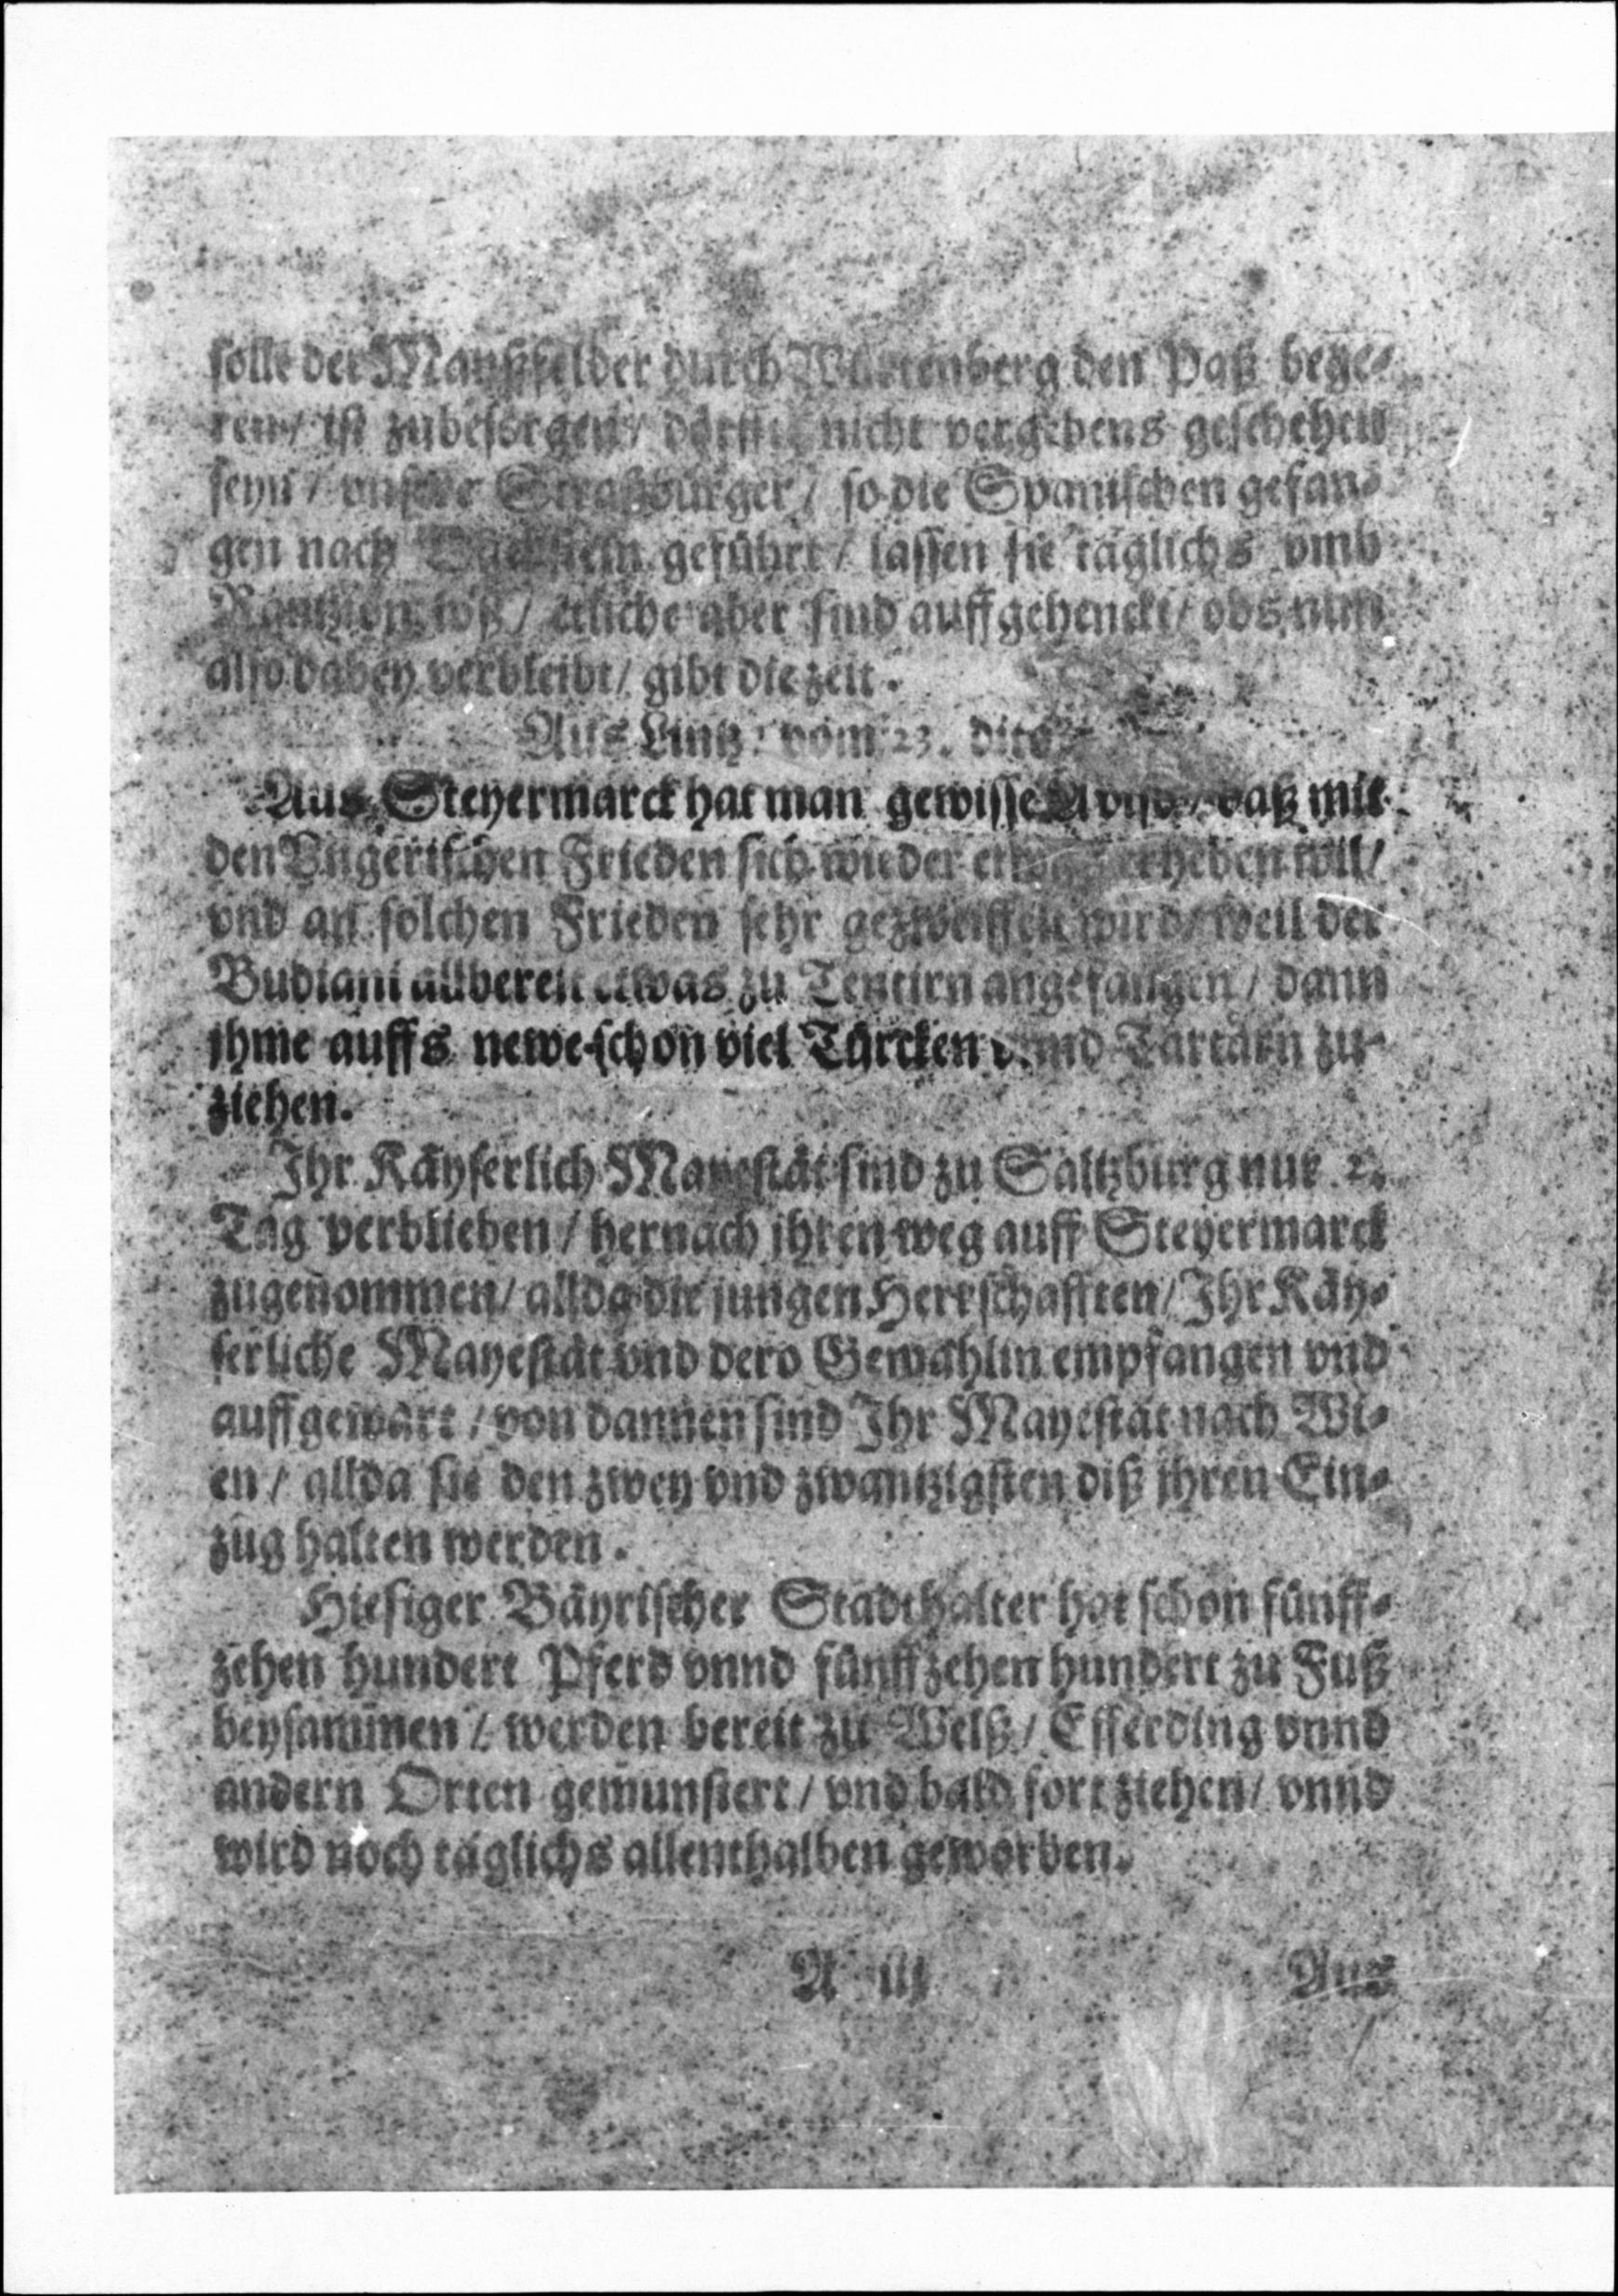 solle der Manßfelder durch Würtenberg den Paß bege-
ren / ist zubesorgen / dörffte nicht vergebens geschehen
seyn / vnsere Straßburger / so die Spanischen gefan-
gen nach geführt / lassen sie täglichs vmb
Rantzion loß / etliche aber sind auffgehenckt / obs nun
also dabey verbleibt / gibt die zeit.
Aus Lintz / vom 23. dito
Aus Steyermarck hat man gewisse Aviso / daß mit
den Vngerischen Frieden sich wieder erheben wil /
vnd an solchen Frieden sehr gezweiffelt wird / weil der
Budiani allbereit etwas zu Tentirn angefangen / dann
jhme auffs newe schon viel Türcken vnnd Tartarn zu-
ziehen.
Ihr Käyserlich Mayestät sind zu Saltzburg nur 2.
Tag verblieben / hernach jhren weg auff Steyermarck
zugenommen / allda die jungen Herrschafften / Ihr Käy-
serliche Mayestät vnd dero Gewahlin empfangen vnd
auffgewart / von dannen sind Ihr Mayestät nach Wi-
en / allda sie den zwey vnd zwantzigsten diß jhren Ein-
zug halten werden.
Hiesiger Bäyrischer Stadthalter hat schon fünff-
zehen hundert Pferd vnnd fünffzehen hundert zu Fuß
beysammen / werden bereit zu Welß / Efferding vnnd
andern Orten gemunstert / vnd bald fort ziehen / vnnd
wird noch täglichs allenthalben geworben.
A iij Aus